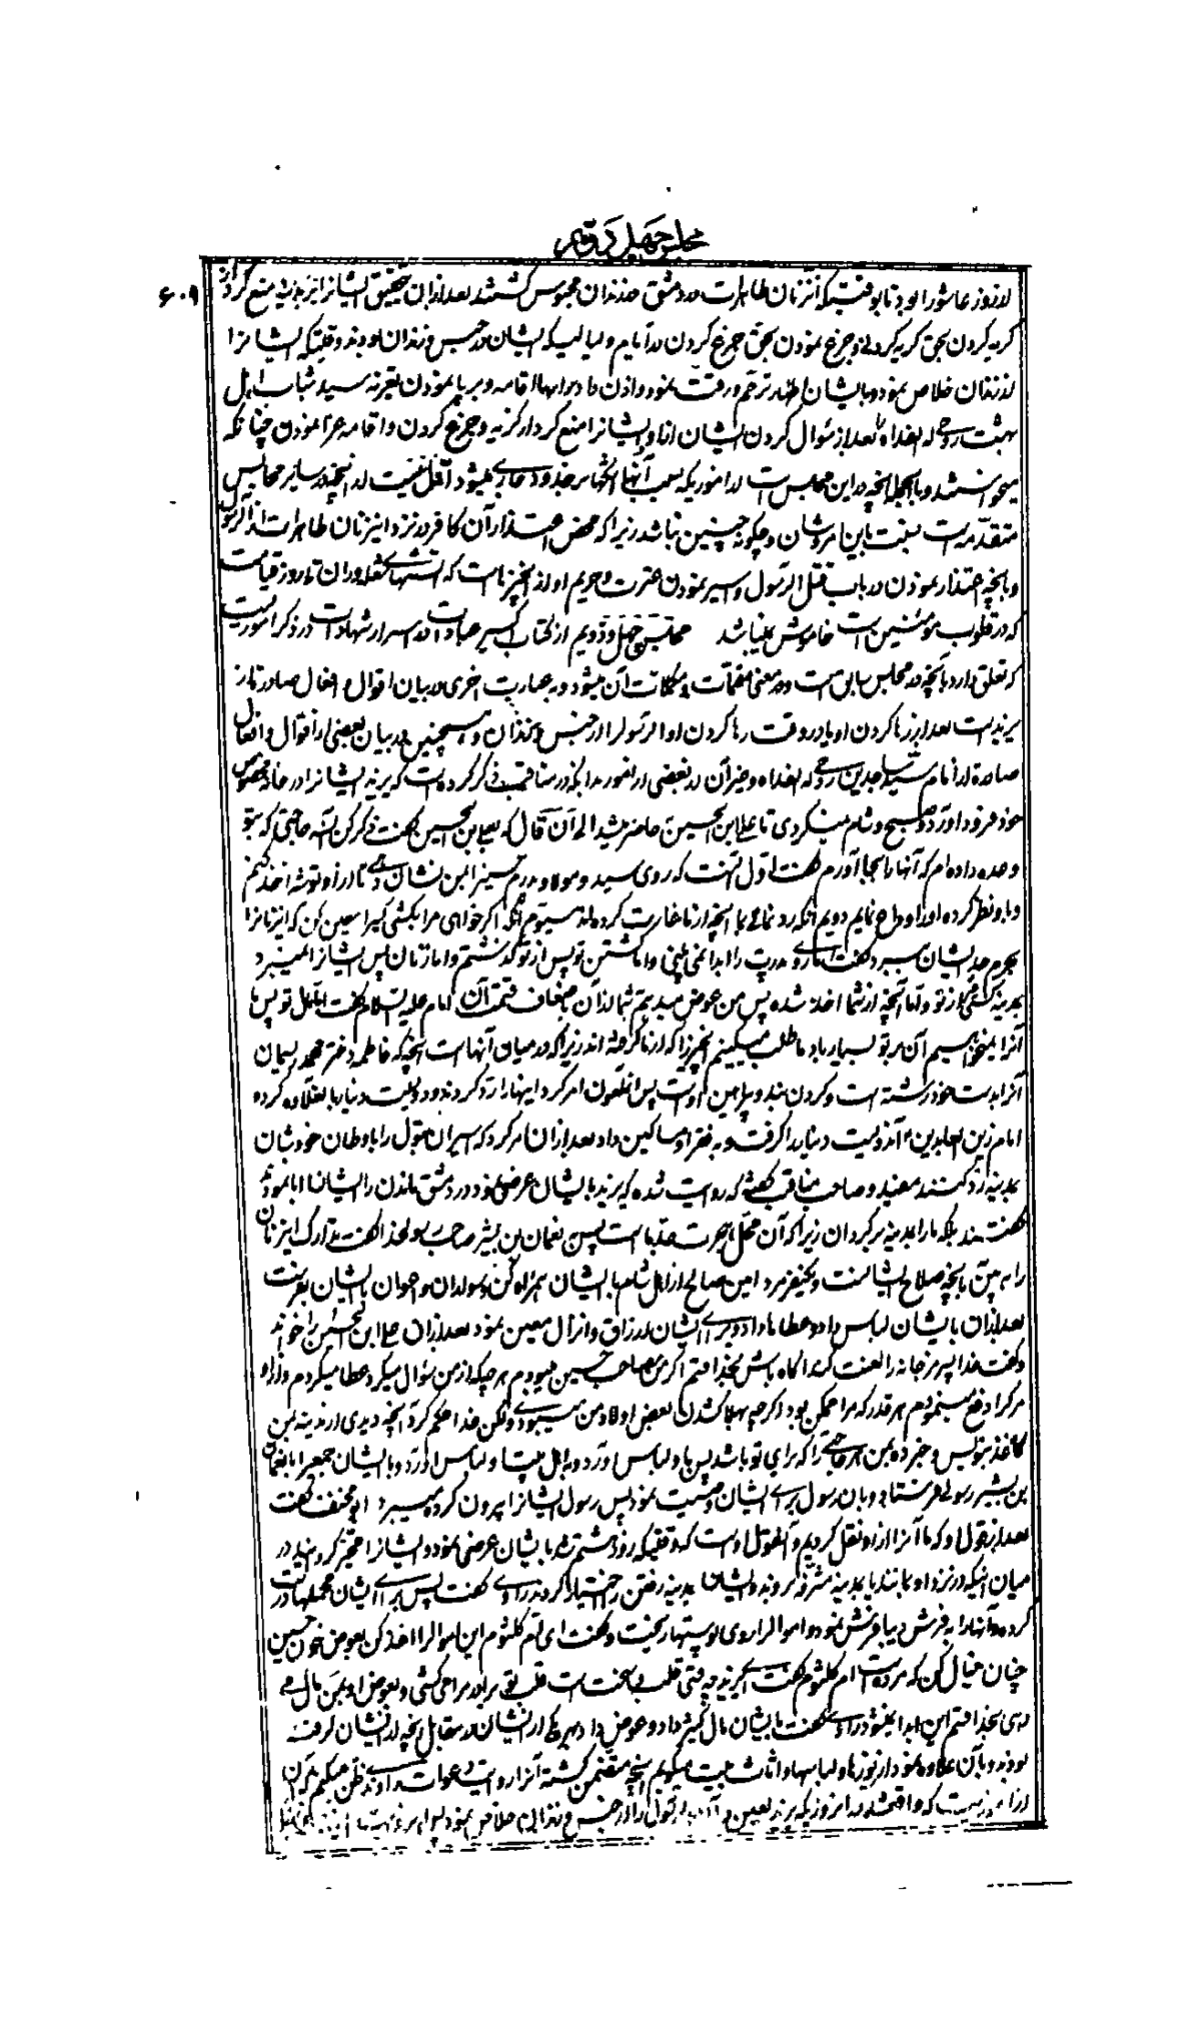 مجلس چهل و دویم
۶۰۹
از روز عاشورا بود تا بوقتیکه آن زنان طاهرات در دمشق در زندان محبوس گشتند بعد از آن تحقیق ایشانرا یزید پلید منع کرد از
گریه کردن بحق گریه کردن و جزع نمودن بحق جزع کردن در ایام و لیالیکه ایشان در حبس و زندان بودند وقتیکه ایشانرا
از زندان خلاص نمود و بایشان اظهار ترحم و رقت نمود و اذن داد برایها اقامه و برپا نمودن تعزیه سید شباب اهل
بهشت روحی له الفداء بعد از سئوال کردن ایشان اذن و ایشانرا منع کرد از گریه و جزع کردن و اقامه عزا نمودن چنانکه
میخواستند و بالجمله آنچه در این مجلس است از اموریکه بسبب آنها
متقدمه است نسبت باین امر و شأن و چگونه چنین نباشد زیرا که محض اعتذار آن کافر در نزد این زنان طاهرات از آل رسول
و بآنچه اعتذار نمودن در باب قتل آل رسول و اسیر نمودن عترت و حریم او از آن چیزهاست که آتشهای شعله‌وران تا روز قیامت
که در قلوب مؤمنین است خاموش نمیباشد مجلس چهل و دویم از کتاب اکسیر عبادات در اسرار شهادات در ذکر اموریست
که تعلق دارد بآنچه در مجلس سابق است و در معنی متممات و مکملات آن میشود و به عبارت اخری در بیان اقوال و افعال صادره از
یزید است بعد از رها کردن او یا در وقت رها کردن او آل رسول را از حبس و زندان و همچنین در بیان بعضی از اقوال و افعال
صادره از امام سید ساجدین روحی له الفداء و غیر آن در بعضی از امور
خود فرود آورد و صبح و شام میل نمیکردی تا علی ابن الحسین حاضر میشد الی آن قال که بعلی بن الحسین گفت ذکر کن سه حاجتی که بتو
وعده داده‌ام که آنها را بجا آورم گفت اول آنست که روی سید و مولا و پدرم حسین را بمن نشان دهی تا از او توشه اخذ کنم
و باو نظر کرده او را وداع نمایم دویم آنکه رد نمائی بما آنچه از ما غارت کرده‌اند سیوم آنکه اگر خواهی مرا بکشی کسی را معین کن که این زنانرا
بحرم جد ایشان ببرد گفت اما روی پدرت را ابدا نمی‌بینی و اما کشتن تو پس از تو گذشتم و اما زنان پس ایشانرا نمیبرد
بمدینه کسی غیر از تو و اما آنچه از شما اخذ شده پس من عوض میدهم شما را از آن باضعاف قیمت آن امام علیه السلام گفت اما مال تو پس ما
آنرا نمیخواهیم آن بر تو بسیار باد ما طلب میکنیم آنچیزرا که از ما گرفته‌اند زیرا که در میان آنها است آنچه که فاطمه دختر محمد ریسمان
آنرا بدست خود رشته است و گردن بند و پیراهن اوست پس آن ملعون امر کرد اینها را رد کردند و دویست دینار بآن علاوه کرد
امام زین العابدین آن دویست دینار را گرفت و به فقراء و مساکین داد بعد از آن امر کرد که اسیران بتول را باوطان خودشان
بمدینه رد کنند مفید و صاحب مناقب گفته که روایت شده که یزید بایشان عرض نمود در دمشق ماندن را ایشان ابا نمودند
گفتند بلکه ما را بمدینه برگردان زیرا که آن محل هجرت جد ما است پس نعمان بن بشیر صاحب رسولخدا گفت تدارک این زنان
را به بین بآنچه صلاح ایشانست و یکنفر مرد امین صالح از اهل شام با ایشان همراه کن و سواران و اعوان بایشان بفرست
بعد از آن بایشان لباس داد و عطاها داد و برای ایشان ارزاق و انزال معین نمود بعد از آن علی ابن الحسین را خواند
و گفت خدا پسر مرجانه را لعنت کند آگاه باش بخدا قسم اگر من صاحب حسین میبودم هر چیکه از من سؤال میکرد عطا میکردم و از او
مرگ را دفع مینمودم هر قدر که مرا ممکن بود اگر چه بهلاک شدن بعض اولاد من میبود ولکن خدا حکم کرد آنچه دیدی از مدینه بمن
کاغذ بنویس و خبر ده بمن هر حاجتی را که برای تو باشد پس باو لباس آورد و به اهل بیت او لباس آورد و با ایشان جمعیرا با نعمان
بن بشیر رسولی فرستاد و بآن رسول برای ایشان وصیت نمود پس رسول ایشانرا بیرون کرده میبرد ابو مخنف گفت
بعد از نقل او که ما آنرا از او نقل کردیم و آن قول اوست که وقتیکه روز هشتم شد بایشان عرض نمود و ایشانرا مخیر گردانید در
میان اینکه در نزد او بمانند یا بمدینه مشرفه بروند و ایشان بمدینه رفتن را اختیار کردند راوی گفت پس برای ایشان محملها درست
کرده و آنها را به فرش دیبا فرش نمود و اموال را روی پوستها ریخت و گفت ای ام کلثوم این اموال را اخذ کن بعوض خون حسین
چنان خیال کن که مرده است ام کلثوم گفت ای یزید چه قسی قلب و سخت است قلب تو برادر مرا میکشی و بعوض او بمن مال می
دهی بخدا قسم این ابدا نمیشود راوی گفت بایشان مال کثیر داد و عوض داد بهر یکی از ایشان در مقابل آنچه از ایشان گرفته
بودند و بآن علاوه نمود از زیورها و لباسها و اثاث بیت
که واقع شد در آنروز که یزید لعین آل رسول را از حبس و زندان خلاص نمود